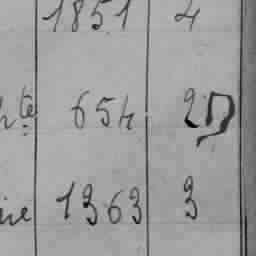 1851 4
te 654 2
1363 3